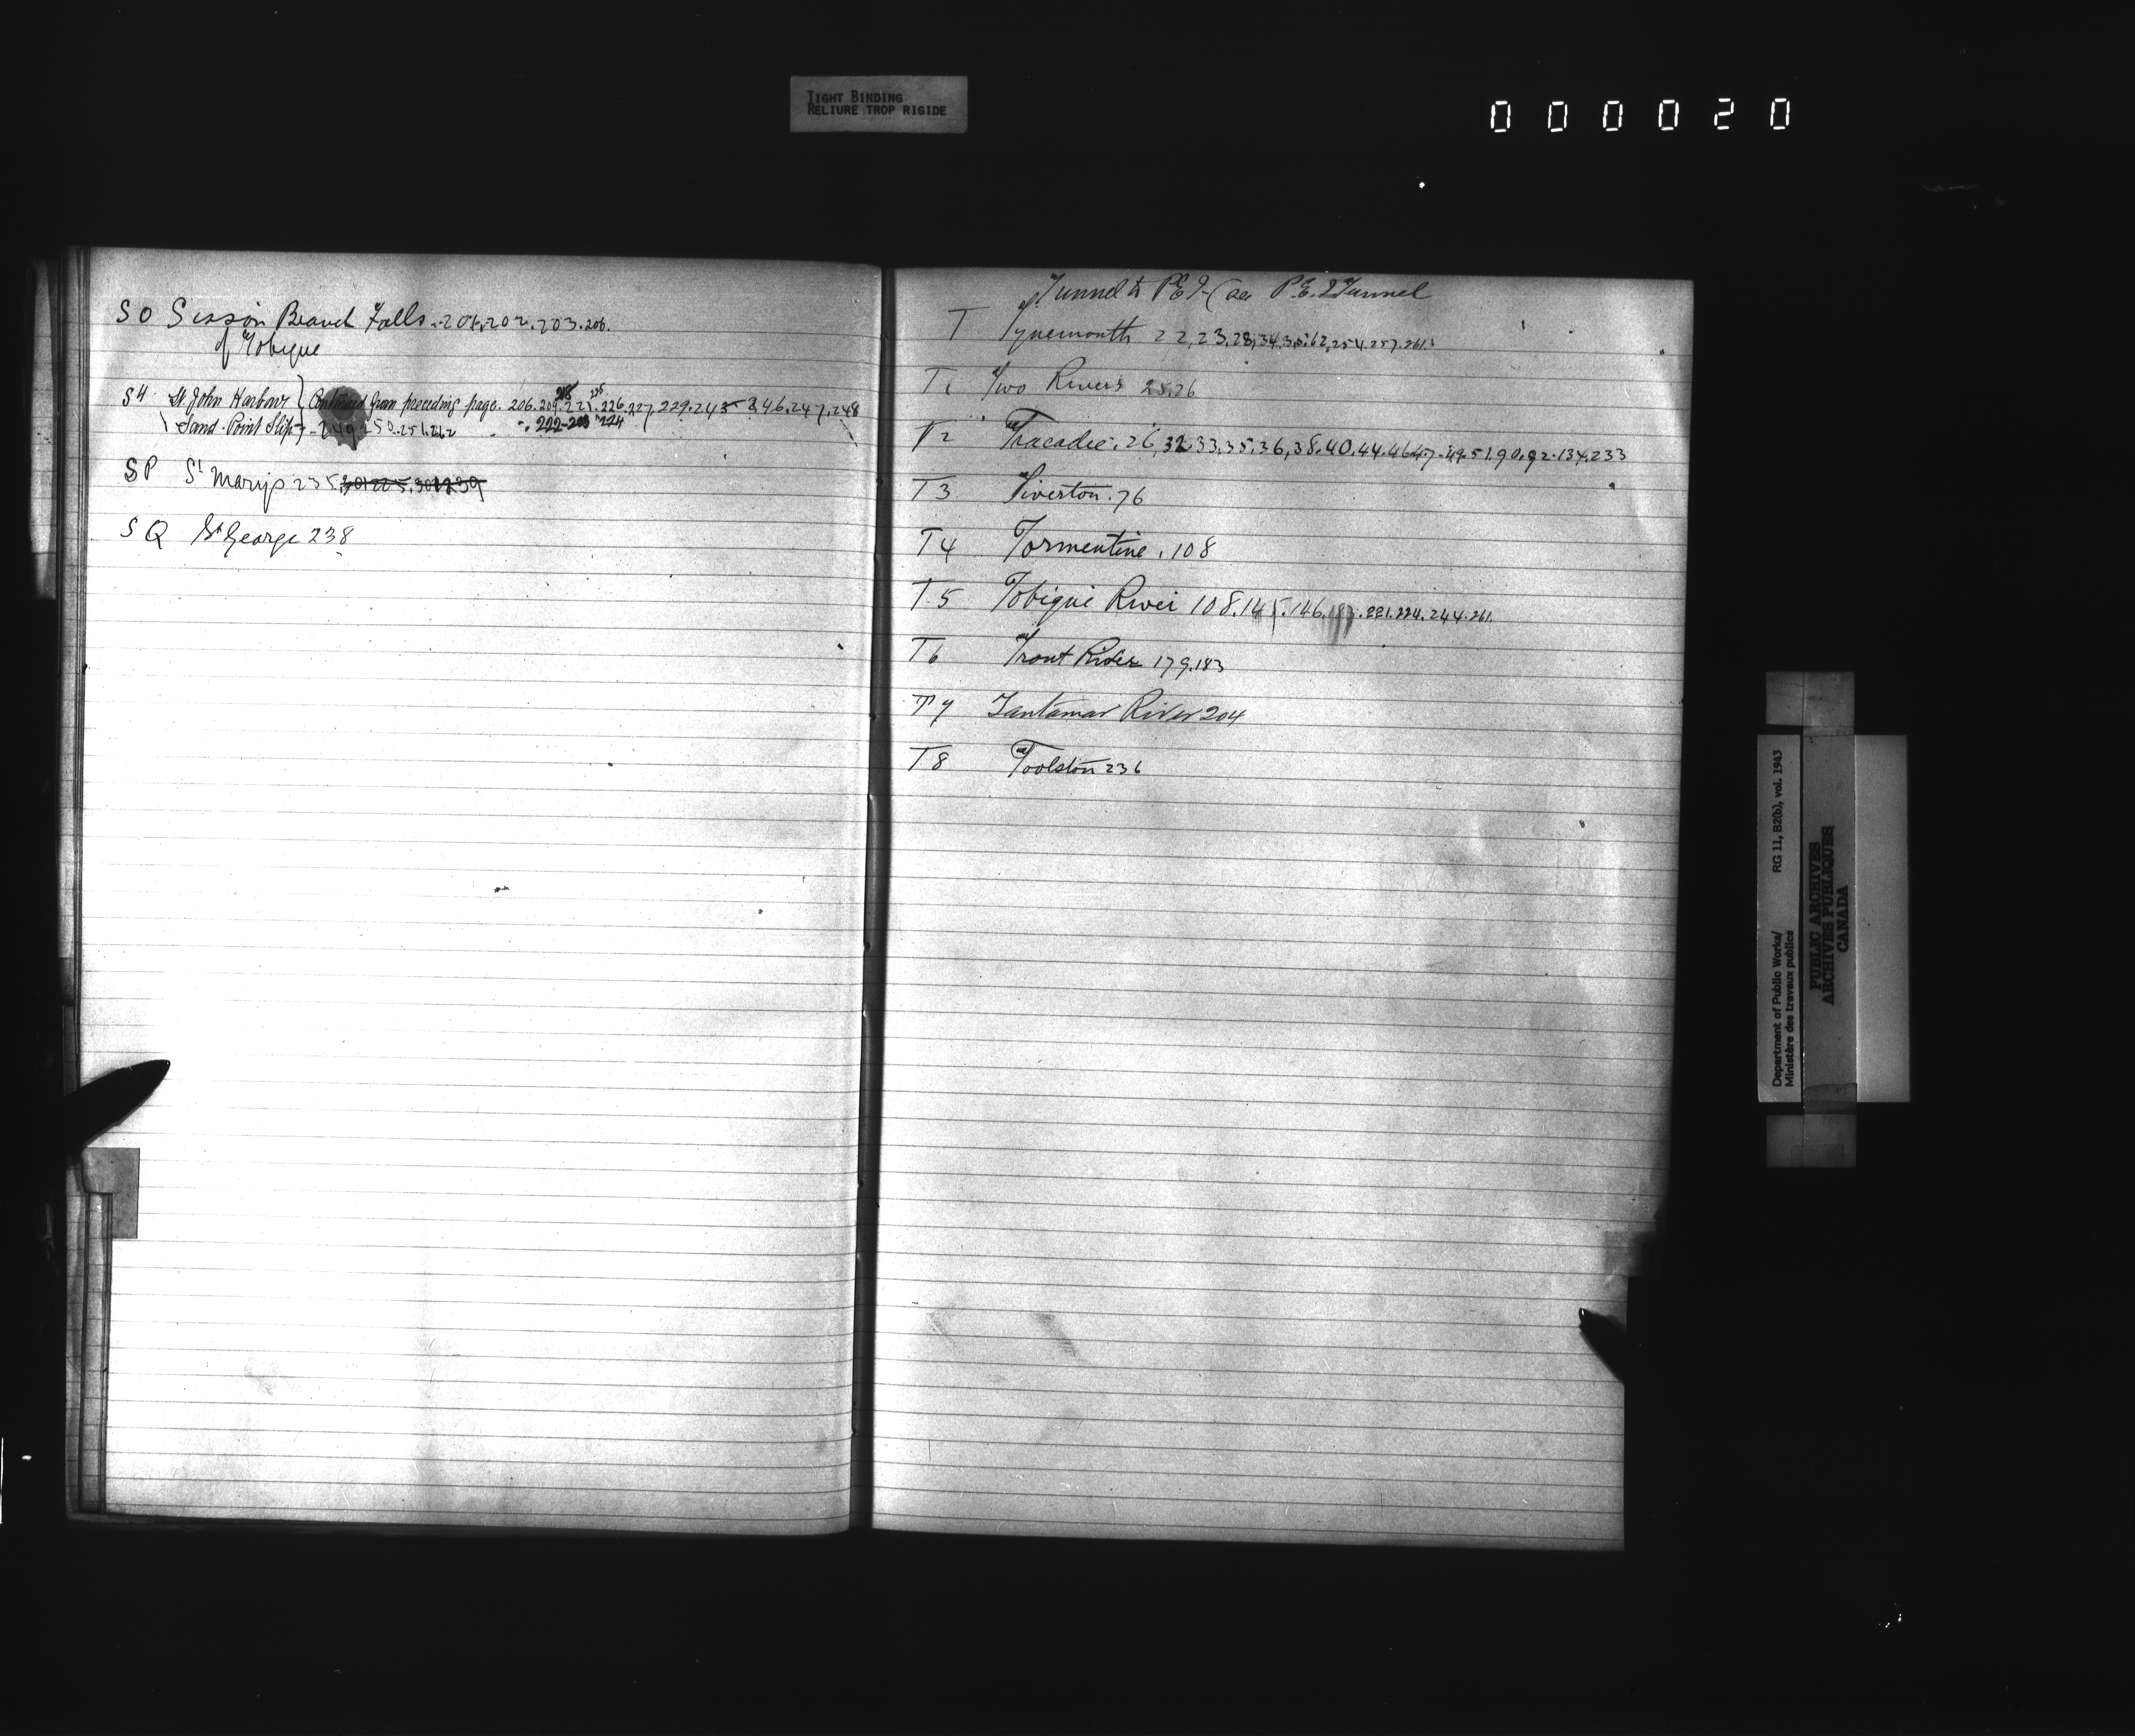 TIGHT BINDING
RELIURE TROP RIGIDE
000020
SO Sisson Branch Falls. 201.202.203.206.
of Tobique
S4 St John Harbour Continued from preceding page. 206.209.221.226.227.229.245-246.247.248
218 225
Sand Point Slip - 249-250.251.262 222-223 224
SP St Marys 235
SQ St George 238
Tunnel to P.E.I. (see P.E.I Tunnel
T Tynemouth 22,23,28,34,35,62,254.257.261.
T1 Two Rivers 25.26
T2 Tracadie. 26,32,33,35,36,38.40.44.46.47.49.51.90.92.134.233
T3 Tiverton. 76
T4 Tormentine. 108
T5 Tobique River 108.145.146.183.221.224.244.261.
T6 Trout River 179.183
T7 Tantamar River 204
T8 Toolston 236
Department of Public Works/
Ministère des travaux publics
RG 11, B2(b), vol. 1943
PUBLIC ARCHIVES
ARCHIVES PUBLIQUES
CANADA